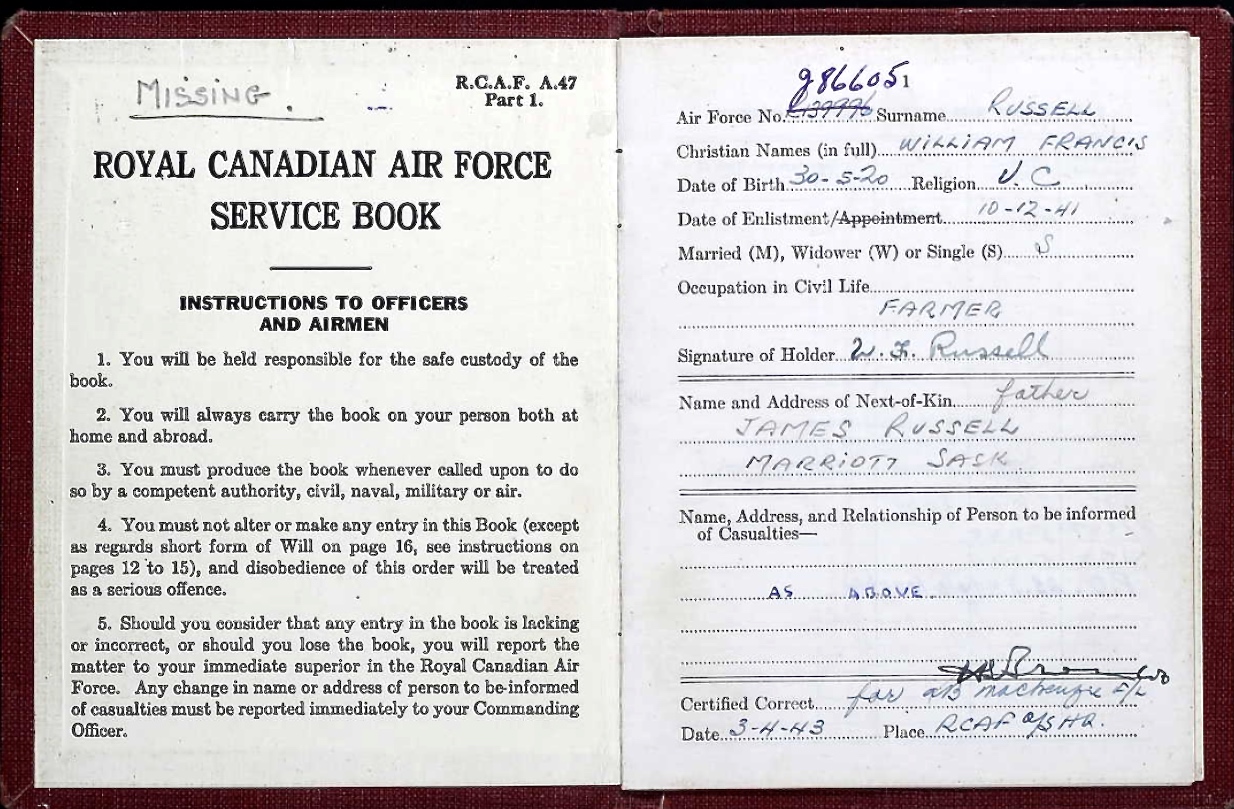 MISSING.
R.C.A.F. A.47
Part 1.
ROYAL CANADIAN AIR FORCE
SERVICE BOOK
INSTRUCTIONS TO OFFICERS
AND AIRMEN
1. You will be held responsible for the safe custody of the
book.
2. You will always carry the book on your person both at
home and abroad.
3. You must produce the book whenever called upon to do
so by a competent authority, civil, naval, military or air.
4. You must not alter or make any entry in this Book (except
as regards short form of Will on page 16, see instructions on
pages 12 to 15), and disobedience of this order will be treated
as a serious offence.
5. Should you consider that any entry in the book is lacking
or incorrect, or should you lose the book, you will report the
matter to your immediate superior in the Royal Canadian Air
Force. Any change in name or address of person to be informed
of casualties must be reported immediately to your Commanding
Officer.
1
Air Force No. Surname RUSSELL
Christian Names (in full) WILLIAM FRANCIS
Date of Birth 30-5-20 Religion U.C.
Date of Enlistment/Appointment 10-12-41
Married (M), Widower (W) or Single (S) S
Occupation in Civil Life
FARMER
Signature of Holder W. F. Russell
Name and Address of Next-of-Kin father
JAMES RUSSELL
MARRIOTT SASK
Name, Address, and Relationship of Person to be informed
of Casualties—
AS ABOVE
Certified Correct for MacKenzie F/L
Date 3-4-43 Place RCAF O/S HQ.